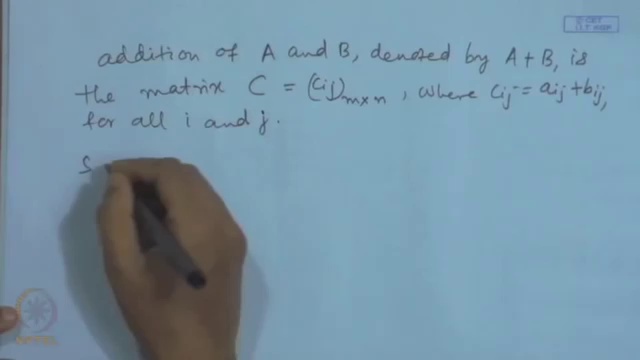 addition of A and B, denoted by A + B, is
the matrix C = (cij)m×n, where cij = aij + bij,
for all i and j.
S